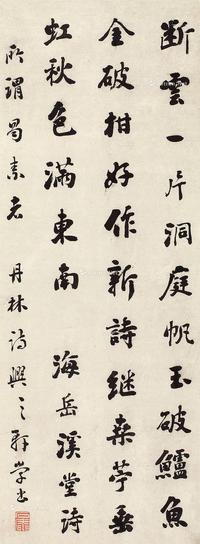 断雲一片洞庭帆玉破鱸魚
金破柑好作新詩继桑苧垂
虹秋色满東南 海岳溪堂詩
所謂蜀素者 丹林詩興之軒學書